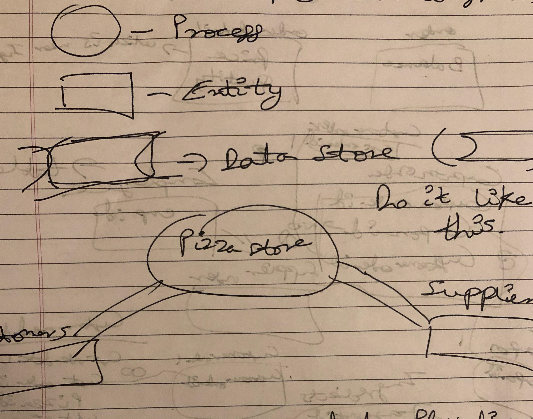 Process
Entity
Data Store
Do it like
this.
Pizza store
Supplier
tomers